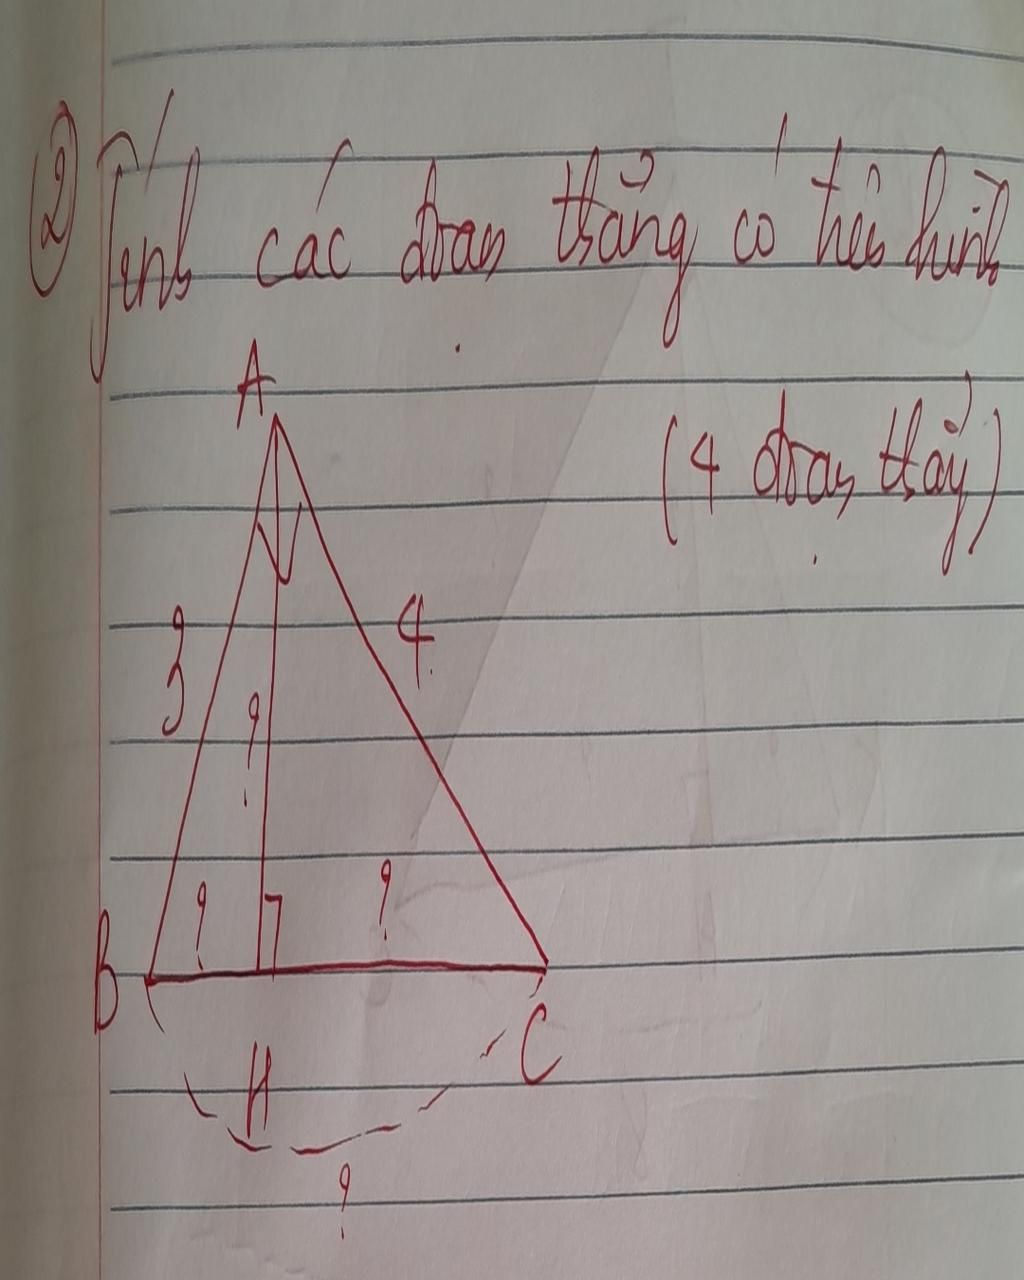 ② Tính các đoạn thẳng có trên hình
(4 đoạn thẳng)
A
3
4
?
?
?
B
H
C
?